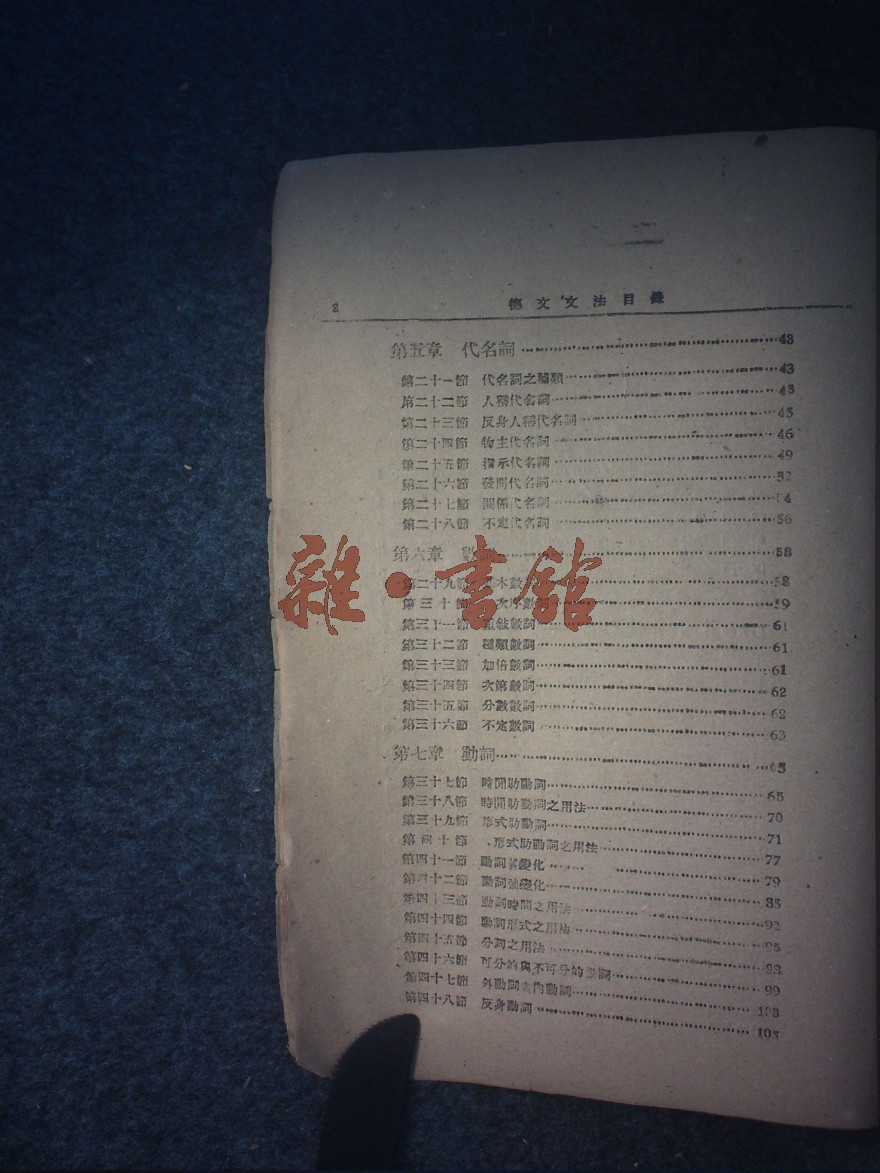 2 德文文法目錄
第五章 代名詞 43
第二十一節 代名詞之種類 43
第二十二節 人稱代名詞 43
第二十三節 反身人稱代名詞 45
第二十四節 物主代名詞 46
第二十五節 指示代名詞 49
第二十六節 發問代名詞 52
第二十七節 關係代名詞 54
第二十八節 不定代名詞 56
第六章 數詞 58
雜·書館
第二十九節 基本數詞 58
第三十節 次序數詞 59
第三十一節 重敍數詞 61
第三十二節 種類數詞 61
第三十三節 加倍數詞 61
第三十四節 次第數詞 62
第三十五節 分數數詞 62
第三十六節 不定數詞 63
第七章 動詞 65
第三十七節 時間助動詞 65
第三十八節 時間助動詞之用法 70
第三十九節 形式助動詞 71
第四十節 形式助動詞之用法 77
第四十一節 動詞變化 79
第四十二節 動詞強變化 85
第四十三節 動詞時間之用法 92
第四十四節 動詞形式之用法 95
第四十五節 分詞之用法 98
第四十六節 可分的與不可分的動詞 99
第四十七節 外動詞與內動詞 103
第四十八節 反身動詞 103